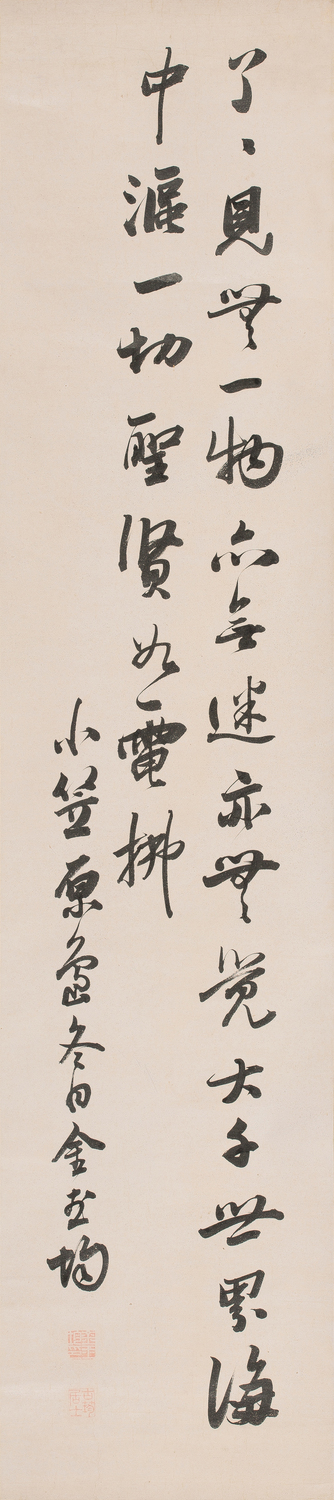 了〻見無一物亦無迷亦無覚大千世界海
中漚一切聖賢如電拂
小笠原島冬日金玉均